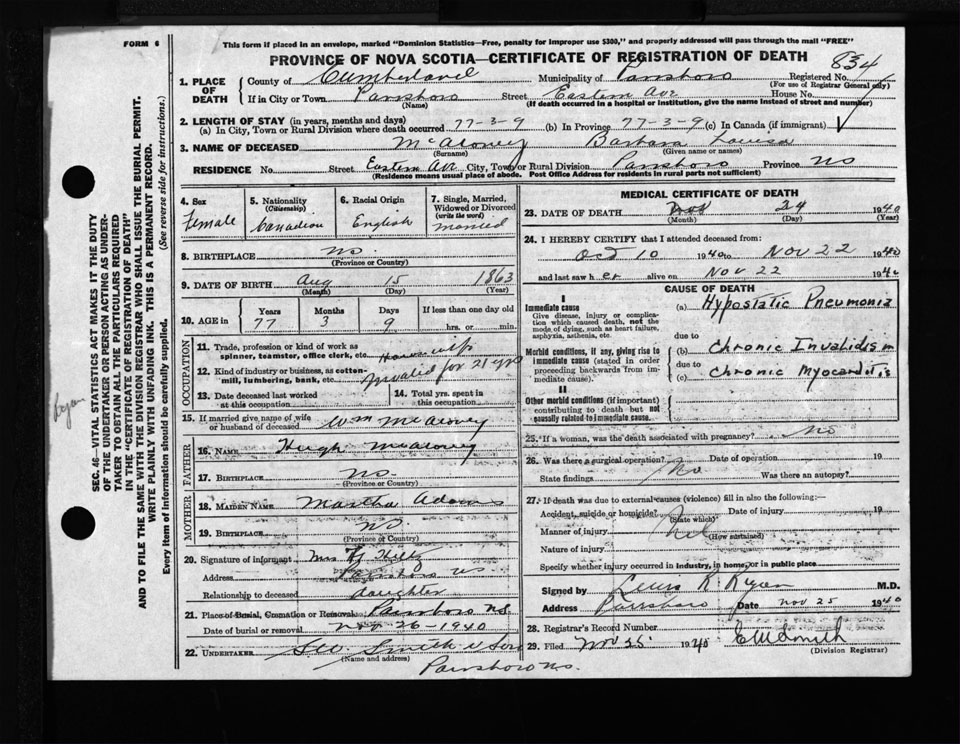 FORM 6
This form if placed in an envelope, marked "Dominion Statistics—Free, penalty for improper use $300," and properly addressed will pass through the mail "FREE"
PROVINCE OF NOVA SCOTIA—CERTIFICATE OF REGISTRATION OF DEATH 834
1. PLACE OF DEATH
County of Cumberland Municipality of Parrsboro Registered No.
(For use of Registrar General only)
If in City or Town Parrsboro Street Eastern Ave House No.
(Name) (If death occurred in a hospital or institution, give the name instead of street and number)
2. LENGTH OF STAY (in years, months and days)
(a) In City, Town or Rural Division where death occurred 77-3-9 (b) In Province 77-3-9 (c) In Canada (if immigrant)
3. NAME OF DECEASED McAloney Barbara Louisa
(Surname) (Given name or names)
RESIDENCE No. Street Eastern Ave City, Town or Rural Division Parrsboro Province NS
(Residence means usual place of abode. Post Office Address for residents in rural parts not sufficient)
4. Sex
Female
5. Nationality
(Citizenship)
Canadian
6. Racial Origin
English
7. Single, Married, Widowed or Divorced
(write the word)
Married
8. BIRTHPLACE NS.
(Province or Country)
9. DATE OF BIRTH Aug 15 1863
(Month) (Day) (Year)
10. AGE in Years Months Days If less than one day old
77 3 9 hrs. or min.
OCCUPATION
11. Trade, profession or kind of work as spinner, teamster, office clerk, etc. Housewife
12. Kind of industry or business, as cotton-mill, lumbering, bank, etc. Invalid for 21 yrs
13. Date deceased last worked at this occupation
14. Total yrs. spent in this occupation
15. If married give name of wife or husband of deceased Wm McAloney
FATHER
16. NAME Hugh McAloney
17. BIRTHPLACE NS.
(Province or Country)
MOTHER
18. MAIDEN NAME Martha Adams
19. BIRTHPLACE NS.
(Province or Country)
20. Signature of informant Mrs
Address Parrsboro NS
Relationship to deceased daughter
21. Place of Burial, Cremation or Removal Parrsboro N.S.
Date of burial or removal Nov 26-1940
22. UNDERTAKER Smith & Son
(Name and address)
Parrsboro NS.
MEDICAL CERTIFICATE OF DEATH
23. DATE OF DEATH Nov 24 1940
(Month) (Day) (Year)
24. I HEREBY CERTIFY that I attended deceased from:
Oct 10 1940 to Nov 22 1940
and last saw her alive on Nov 22 1940
CAUSE OF DEATH
I
Immediate cause
Give disease, injury or complication which caused death, not the mode of dying, such as heart failure, asphyxia, asthenia, etc.
(a) Hypostatic Pneumonia
due to
Morbid conditions, if any, giving rise to immediate cause (stated in order proceeding backwards from immediate cause).
(b) Chronic Invalidism
due to
(c) Chronic Myocarditis
II
Other morbid conditions (if important) contributing to death but not causally related to immediate cause.
25. If a woman, was the death associated with pregnancy? No
26. Was there a surgical operation? Date of operation 19
State findings No Was there an autopsy?
27. If death was due to external causes (violence) fill in also the following:—
Accident, suicide or homicide? Date of injury 19
(State which)
Manner of injury
(How sustained)
Nature of injury
Specify whether injury occurred in industry, in home, or in public place
Signed by R. Ryan M.D.
Address Parrsboro Date Nov 25 1940
28. Registrar's Record Number
29. Filed Nov 25 1940 E W Smith
(Division Registrar)
SEC. 46—VITAL STATISTICS ACT MAKES IT THE DUTY
OF THE UNDERTAKER OR PERSON ACTING AS UNDER-
TAKER TO OBTAIN ALL THE PARTICULARS REQUIRED
IN THE "CERTIFICATE OF REGISTRATION OF DEATH"
AND TO FILE THE SAME WITH THE DIVISION REGISTRAR WHO SHALL ISSUE THE BURIAL PERMIT.
WRITE PLAINLY WITH UNFADING INK. THIS IS A PERMANENT RECORD.
Every item of information should be carefully supplied. (See reverse side for instructions.)
Ryan